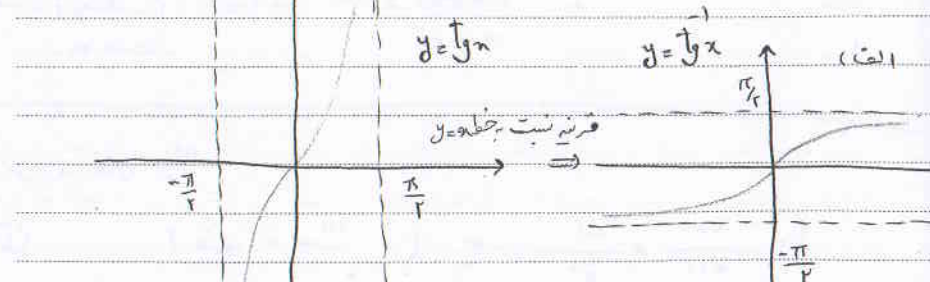 y = tgx
y = tg⁻¹x
الف)
π/۲
قرینه نسبت به خط y=x
⇒
-π/۲
π/۲
-π/۲